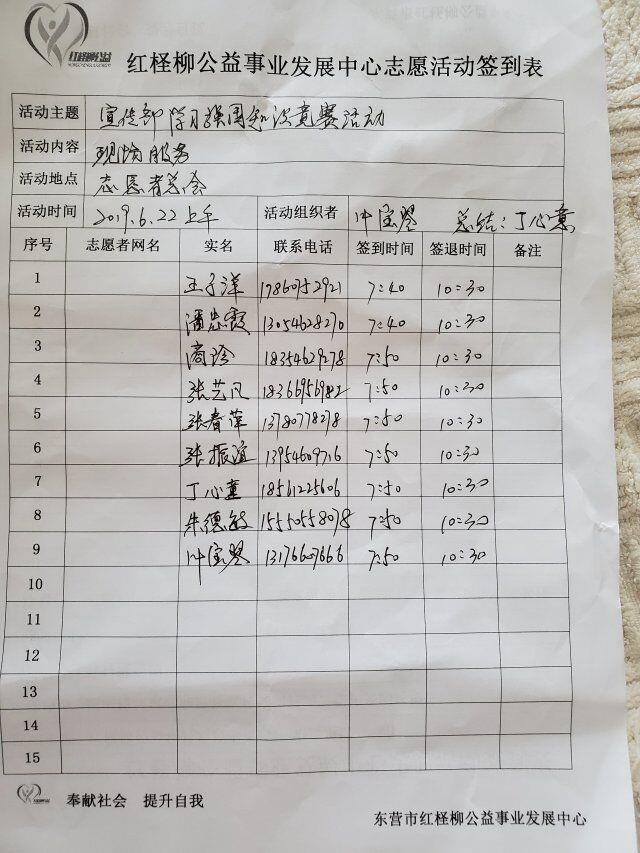 红柽柳公益
红柽柳公益事业发展中心志愿活动签到表
活动主题 宣传部学习强国知识竞赛活动
活动内容 现场服务
活动地点 志愿者总会
活动时间 2019.6.22上午 活动组织者 叶宝琴 总结：丁心童
序号 志愿者网名 实名 联系电话 签到时间 签退时间 备注
1 王子洋 17860752921 7:40 10:30
2 潘忠霞 13054628270 7:40 10:30
3 商玲 18354629278 7:50 10:30
4 张艺凡 18366956982 7:50 10:30
5 张春萍 13780778278 7:50 10:30
6 张振谊 13954609716 7:50 10:30
7 丁心童 18561225606 7:50 10:30
8 朱德敏 15550558078 7:50 10:30
9 叶宝琴 13176607666 7:50 10:30
10
11
12
13
14
15
奉献社会 提升自我
东营市红柽柳公益事业发展中心